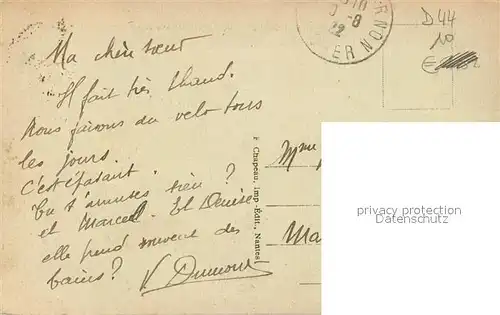 Ma chère soeur
Il fait très chaud.
Nous faisons du velo tous
les jours.
C'est épatant.
Tu t'amuses bien ?
et Marcel. Et Denise
elle prend souvent des
bains ?
V Dumont
8
22
ER NON
D44
10
€
F. Chapeau, Imp.-Édit., Nantes
Mme
Ma
privacy protection
Datenschutz